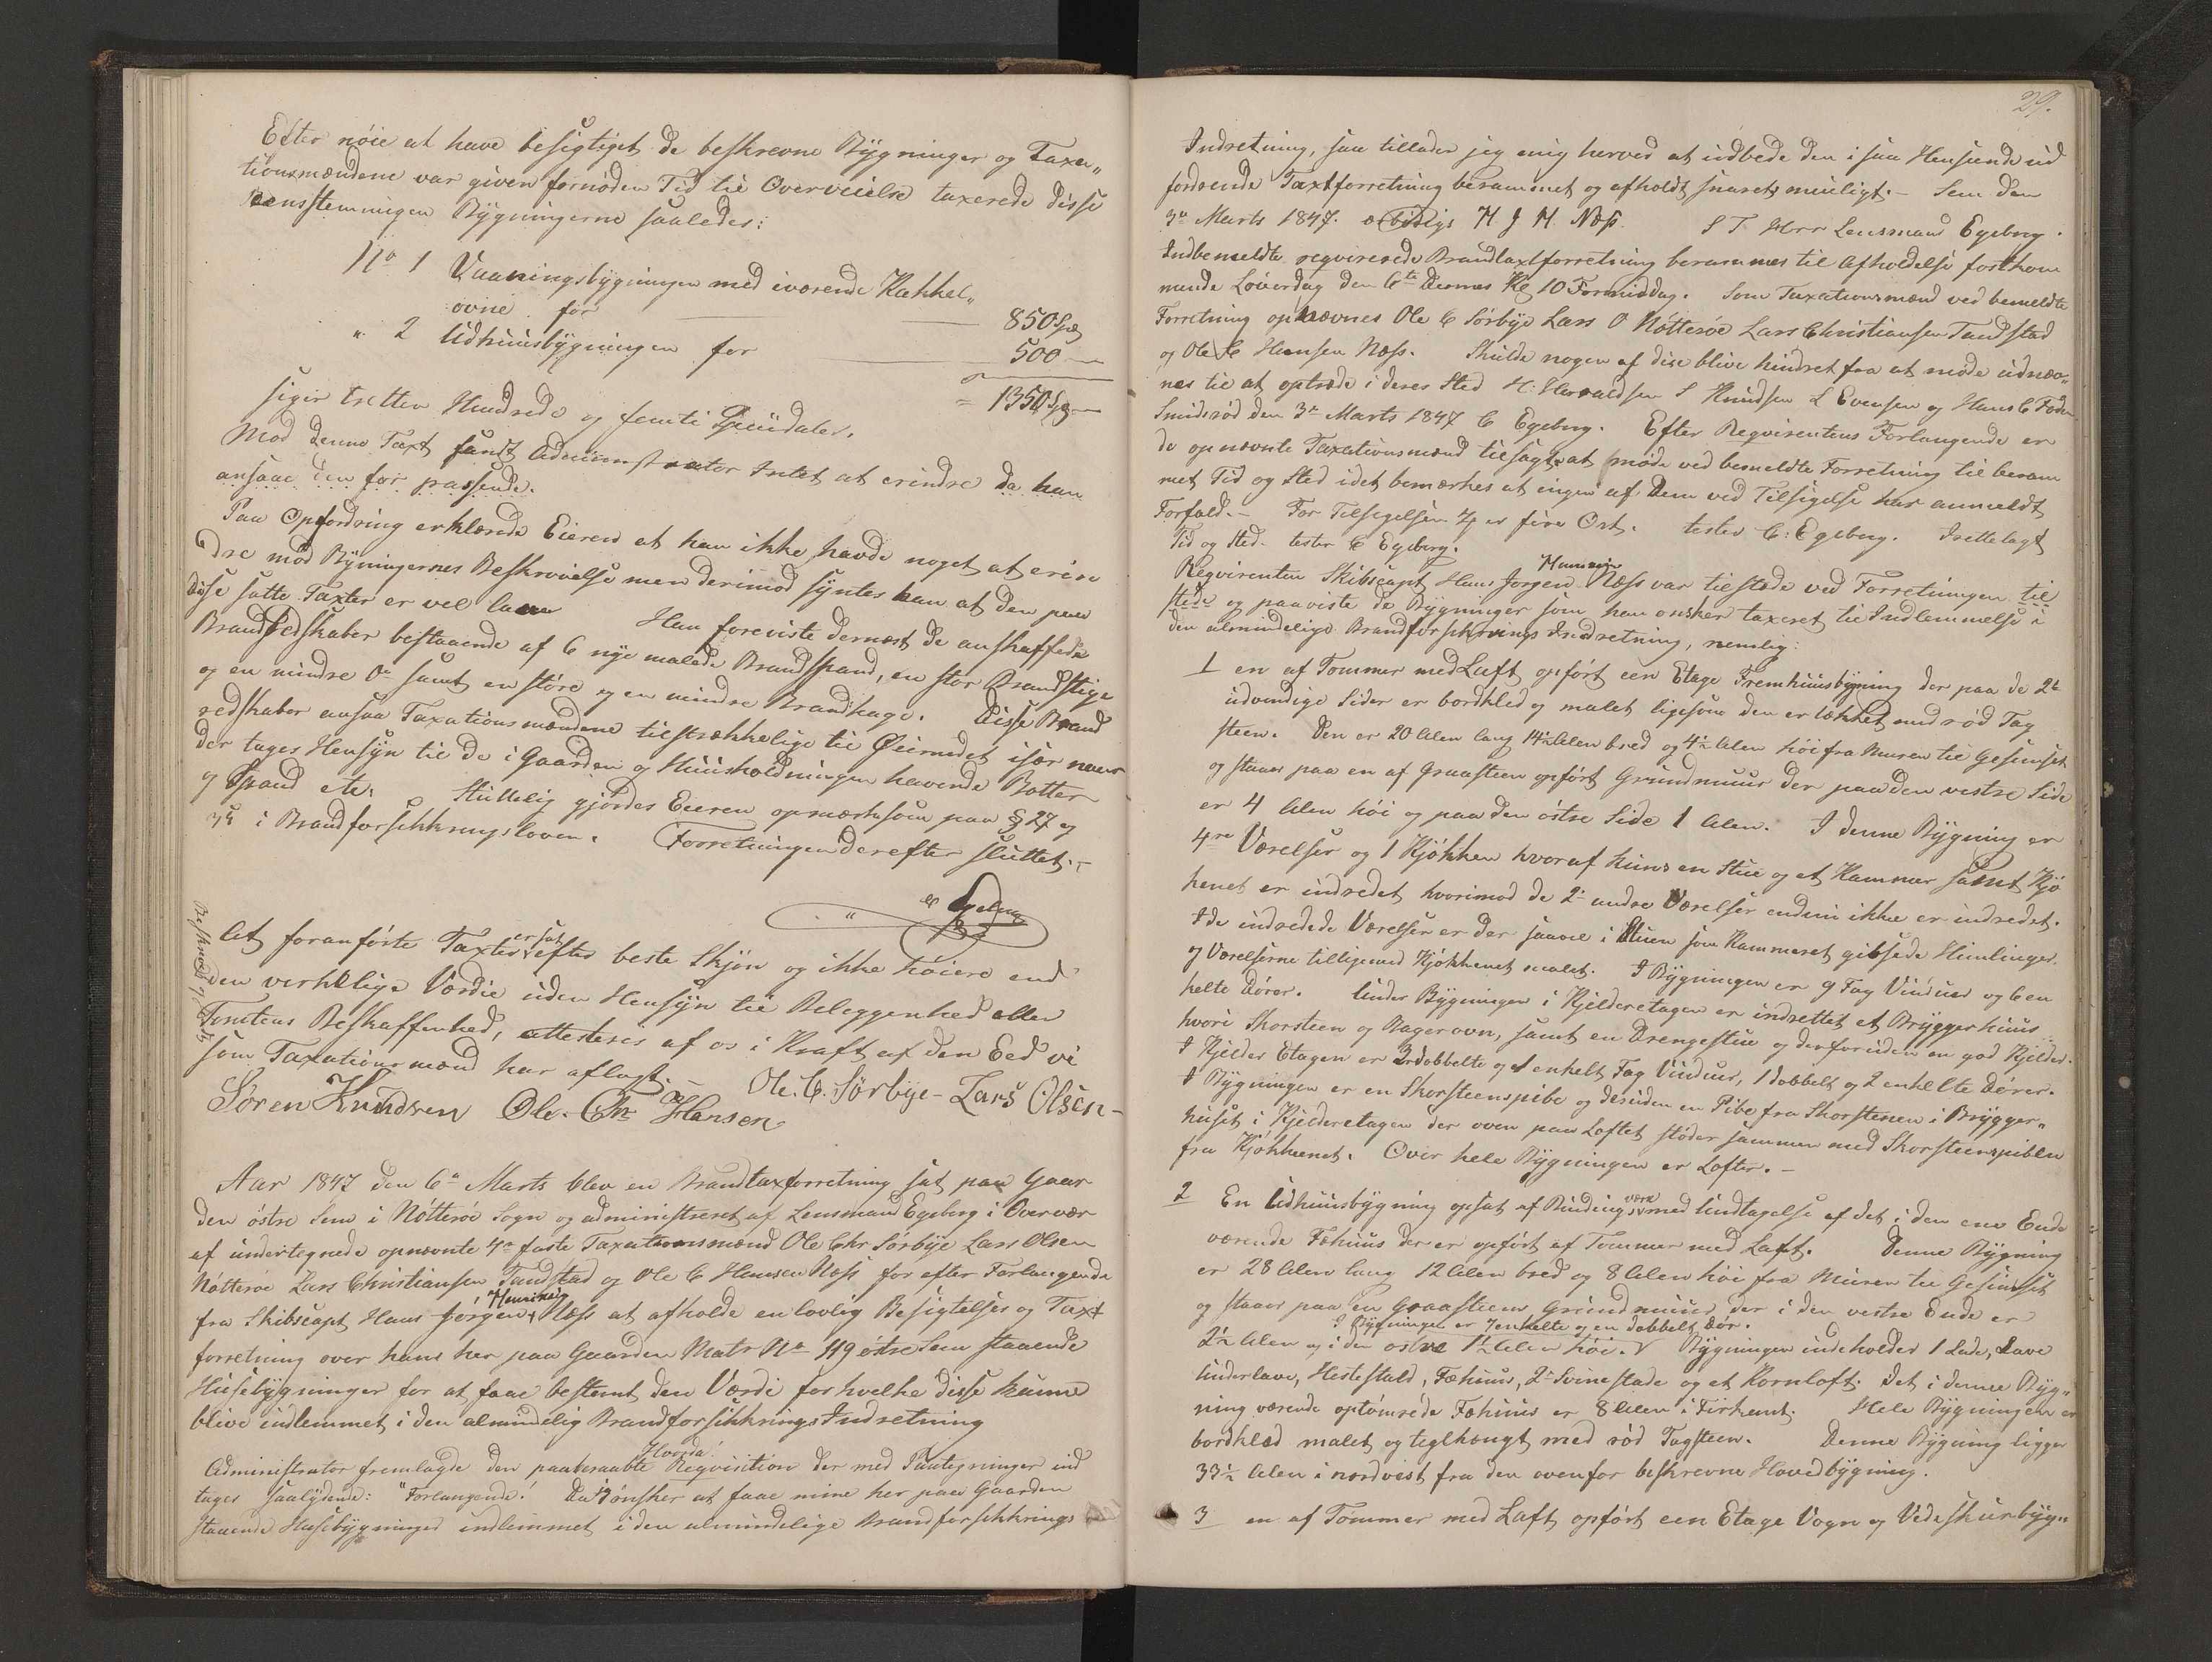 Efter nöie at have besigtiget de beskrevne Bygninger og Taxa„
tionsmændene var given fornöden Tid til Overveielse taxerede disse
eenstemmigen Bygningerne saaledes:
No 1 Vaaningsbygningen med iværende Kakkel„
ovne for 850 Spd
„ 2 Udhuusbygningen for 500 —
= 1350 Spd
siger tretten Hundrede og femti Speciedaler.
Mod denne Taxt fandt Administrator Intet at erindre da han
ansaae den for passende.
Paa Opfordring erklærede Eieren at han ikke havde noget at erin
dre mod Bygningernes Beskrivelse men derimod syntes han at den paa
disse satte Taxter er vel lave Han foreviste dernæst de anskaffede
Brandredskaber bestaaende af 6 nye malede Brandspand, en stor Brandstige
og en mindre Do samt en störe og en mindre Brandhage. Disse Brand
redskaber ansaa Taxationsmændene tilstrækkelige til Öiemedet især naar
der tages Hensyn til de i Gaarden og Huusholdningen havende Bötter
og Spand etc. Sluttelig gjördes Eieren opmærksom paa § 27 og
34 i Brandforsikkringsloven. Forretningen derefter sluttet.–
C Egeberg
At foranförte Taxter er sat efter beste Skjön og ikke höiere end
den verkelige Værdie uden Hensyn til Beleggenhed eller
Tomtens Beskaffenhed, attesteres af os i Kraft af den Eed vi
som Taxationsmænd har aflagt.
Ole. C. Sørbye – Lars Olsen –
Søren Knudsen Ole. Chr Hansen
Aar 1847 den 6te Marts blev en Brandtaxforretning sat paa Gaar
den östre Sem i Nötteröe Sogn og administreret af Lensmand Egeberg i Overvær
af undertegnede opnævnte 4re faste Taxationsmænd Ole Chr Sörbye Lars Olsen
Nötteröe Lars Christiansen Tandstad og Ole C Hansen Næss for efter Forlangende
fra Skibscapt Hans Jörgen Henrich Næss at afholde en lovlig Besigtelses og Taxt
forretning over hans her paa Gaarden Matr No 119 östre Sem staaende
Husebygninger for at faae bestemt den Værdi for hvilke disse kunne
blive indlemmet i den almindelig Brandforsikkrings Indretning
Administrator fremlagde den paaberaabte Requisition der med Paategninger ind
tages saalydende: "Forlangende! Da Jeg önsker at faae mine her paa Gaarden
staaende Husebygninger indlemmet i den almindelige Brandforsikkrings
29.
Indretning, saa tillader jeg mig herved at udbede den i saa Henseende ud
fordrende Taxtforretning berammet og afholdt snarets mueligt.– Sem den
3de Marts 1847. ærbödigst H J H. Næss. S T Herr Lensmand Egeberg.
Indbemeldte reqvirerede Brandtaxtforretning berammes til Afholdelse förstkom
mende Löverdag den 6te dennes Kl 10 Formiddag. Som Taxationsmænd ved bemeldte
Forretning opnævnes Ole C Sörbye Lars O Nötteröe Lars Christiansen Tandstad
og Ole C Hansen Næss. Skulde nogen af disse blive hindret fra at möde udnæv„
nes til at optræde i deres Sted H. Haraldsen S Knudsen L Evensen og Hans C
Smidsröd den 3de Marts 1847 C Egeberg. Efter Reqvirentens Forlangende er
de opnævnte Taxationsmænd tilsagt at möde ved bemeldte Forretning til beram
met Tid og Sted idet bemærkes at ingen af dem ved Tilsigelse har anmeldt
Forfald.– For Tilsigelsen er fire Ort. tester C: Egeberg. Irettelagt
Tid og Sted. tester C Egeberg.
Reqvirenten Skibscapt Hans Jörgen Henrich Næss var tilstede ved Forretningen til
stede og paaviste de Bygninger som han önsker taxeret til Indlemmelse i
den almindelige Brandforsikkrings Indretning, nemlig:
1 en af Tömmer med Laft opfört een Etage Fremhuusbygning der paa de 2de
udvendige Sider er bordkled og malet ligesom den er tækket med röd Tag
steen. Den er 20 Alen lang 14½ Alen bred og 4½ Alen höi fra Muren til Gesimset
og staaer paa en af Graasteen opfört Grundmuur der paa den vestre Side
er 4 Alen höi og paa den östre Side 1 Alen. I denne Bygning er
4re Værelser og 1 Kjökken hvoraf kuns en Stue og et Kammer samt Kjö
kenet er indredet hvorimod de 2de andre Værelser endnu ikke er indredet.
I de indredede Værelser er der saavel i Stuen som Kammeret gibsede Himlinger.
og Værelserne tilligemed Kjökkenet malet. I Bygningen er 9 Fag Vinduer og 6 en
kelte Dörer. Under Bygningen i Kjelderetagen er indrettet et Bryggerhuus
hvori Skorsteen og Bagerovn, samt en Drengestue og derforuden en god Kjelder.
I Kjelder Etagen er 3 dobbelte og 1 enkelt Fag Vinduer, 1 dobbelt og 2 enkelte Dörer.
I Bygningen er en Skorsteenspibe og desuden en Pibe fra Skorstenen i Brygger„
huset i Kjelderetagen der oven paa Loftet stöder sammen med Skorsteenspiben
fra Kjökkenet. Over hele Bygningen er Lofter.–
2 En Udhuusbygning opsat af Bindingsværk med Undtagelse af det i den ene Ende
værende Fæhuus der er opfört af Tömmer med Laft. Denne Bygning
er 28 Alen lang 12 Alen bred og 8 Alen höi fra Muren til Gesimset
og staaer paa en Graasteens Grundmuur der i den vestre Ende er
I Bygningen er 7 enkelte og en dobbelt Dör.
2½ Alen og i den östre 1½ Alen höi. Bygningen indeholder 1 Lade, Lave
Underlave, Hestestald, Fæhuus, 2de Svinestade og et Kornloft. Det i denne Byg„
ning værende optömrede Fæhuus er 8 Alen i Firkant. Hele Bygningen er
bordkled malet og teglhængt med röd Tagsteen. Denne Bygning ligger
33½ Alen i nordvest fra den ovenfor beskrevne Hovedbygning.
3 en af Tömmer med Laft opfört een Etage Vogn og Vedeskurbyg„